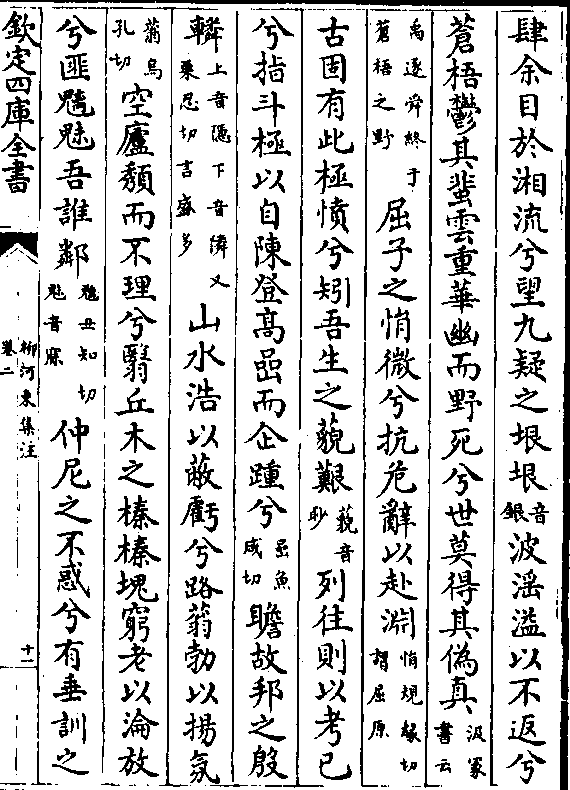 肆余目於湘流兮望九疑之垠垠音銀波滛溢以不返兮
蒼梧鬱其蜚雲重華幽而野死兮世莫得其偽真汲冢書云
禹逐舜終于蒼梧之野屈子之悁微兮抗危辭以赴淵悁規緣切謂屈原
古固有此極憤兮矧吾生之藐艱藐音眇列往則以考已
兮指斗極以自陳登高嵒而企踵兮嵒魚咸切瞻故邦之殷
轔上音隱下音隣又栗忍切言盛多山水浩以蔽虧兮路蓊勃以揚氛
蓊烏孔切空廬頹而不理兮翳丘木之榛榛塊窮老以淪放
兮匪魑魅吾誰鄰魑丑知切魅音寐仲尼之不惑兮有垂訓之
欽定四庫全書
柳河東集注
卷二
十一